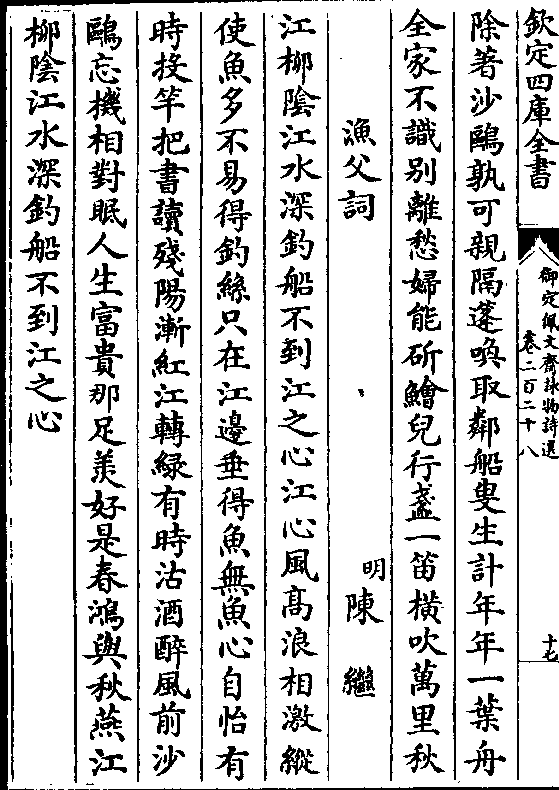 欽定四庫全書
御定佩文齋詠物詩選
卷二百二十八
十七
除著沙鷗孰可親隔蓬喚取鄰船叟生計年年一葉舟
全家不識別離愁婦能斫鱠兒行盞一笛橫吹萬里秋
漁父詞
明陳繼
江柳陰江水深釣船不到江之心江心風髙浪相激縱
使魚多不易得釣絲只在江邊垂得魚無魚心自怡有
時投竿把書讀殘陽漸紅江轉緑有時沽酒醉風前沙
鷗忘機相對眠人生富貴那足羨好是春鴻與秋燕江
柳陰江水深釣船不到江之心